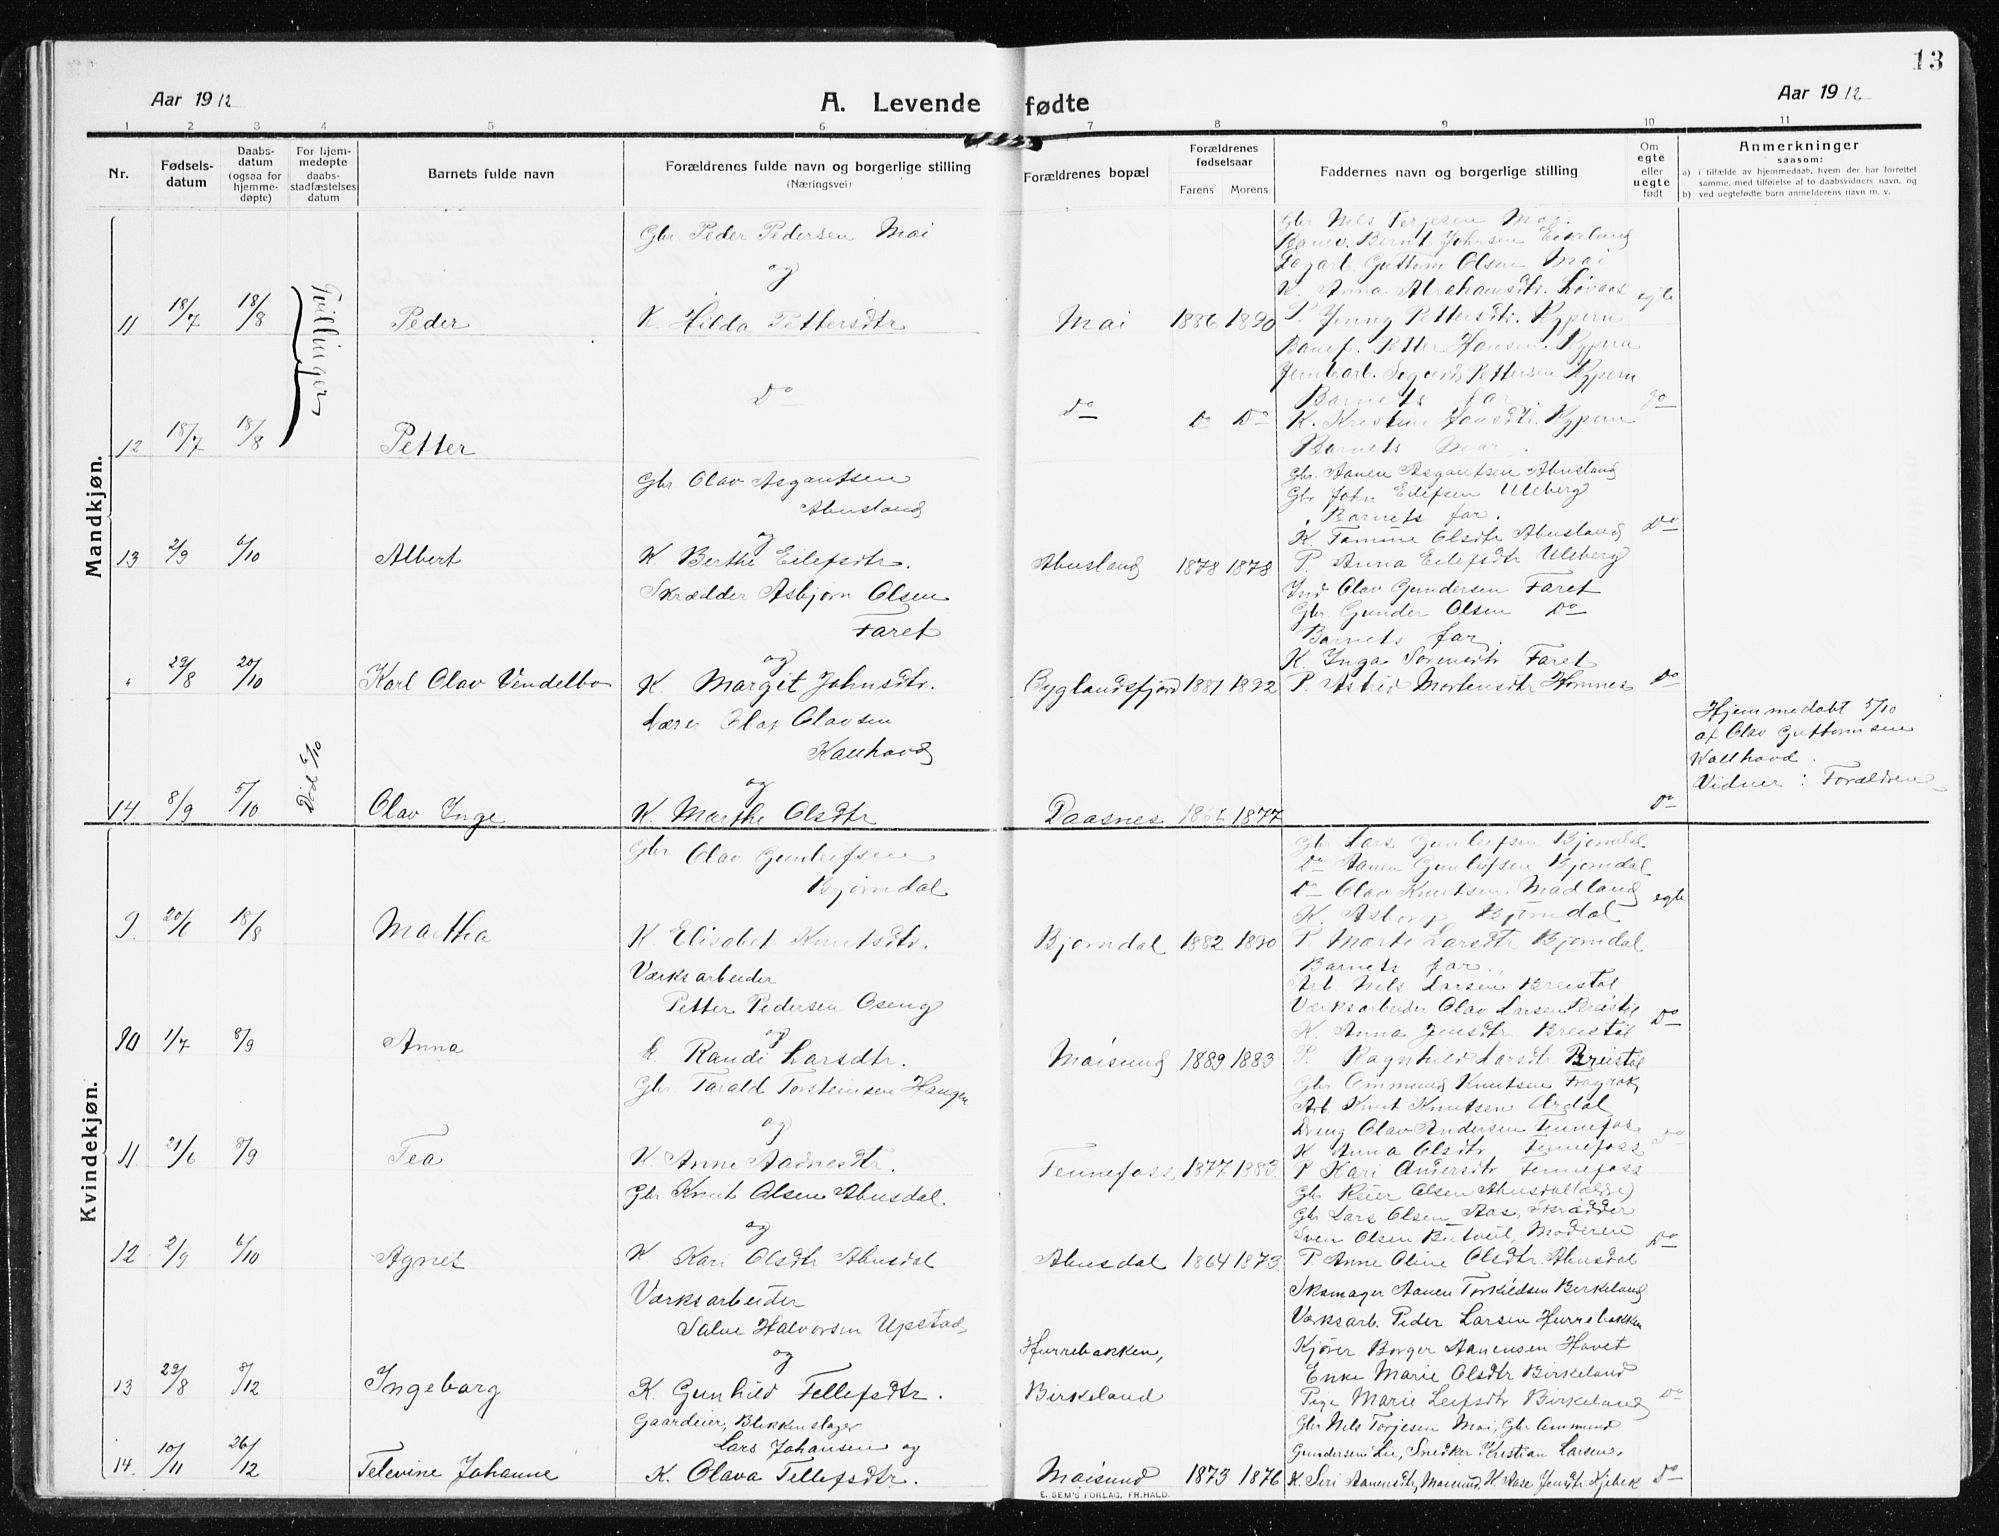 13
Aar 1912
A. Levende fødte
Aar 1912
1 2 3 4 5 6 7 8 9 10 11
Nr.
Fødsels-
datum
Daabs-
datum
(ogsaa for
hjemme-
døpte)
For hjem-
medøpte
daabs-
stadfæstelses
datum
Barnets fulde navn
Forældrenes fulde navn og borgerlige stilling
(Næringsvei)
Forældrenes bopæl
Forældrenes
fødselsaar
Farens Morens
Faddernes navn og borgerlige stilling
Om
egte
eller
uegte
født
Anmerkninger
saasom:
a) i tilfælde av hjemmedaab, hvem der har forrettet
samme, med tilføielse af to daabsvidners navn, og
b) ved uegtefødte barn anmelderens navn m. v.
Mandkjøn.
Tvillinger
Gbr. Peder Pedersen Mai
og
11 18/7 18/8 Peder K. Hilda Pettersdtr Mai 1886 1890 egte
Gbr Nels Terjesen Mai.
Bernt Johnsen Eikeland
Guttorm Olsen Mai
K. Anna Abrahamsdtr. Løvaas
P. Jenny Pettersdtr. Kypern
Petter Hansen Kypern
Jernbarb. Sigurd Pettersen Kypern
Barnets far
12 18/7 18/8 Petter Do Do Do Do do
K. Kristine Hansdtr. Kypern
Barnets Mor.
Gbr Olav Asgautsen
Abusland
og
13 2/9 6/10 Albert K. Berthe Eilefsdtr. Abusland 1878 1878 Do
Gbr. Aanen Asgautsen Abusland
Gbr John Eilefsen Uleberg
Barnets far.
K. Tomine Olsdtr Abusland
P. Anna Eilefsdtr Uleberg
Skrædder Asbjørn Olsen
Faret
og
" 29/8 20/10 Karl Olav Vendelbo K. Margit Johnsdtr. Byglandsfjord 1881 1892 Do
Ind Olav Gundersen Faret
Gbr. Gunder Olsen Do
Barnets far.
K. Inga Sørensdtr Faret
P. Astrid Mortensdtr Hornnes
Lærer Olaf Olavsen
Kallhovd
og
Død 6/10
14 8/9 5/10 Olav Inge K. Marthe Olsdtr Daasnes 1866 1877 Do
Hjemmedøbt 5/10
af Olav Guttormsen
Kallhovd.
Vidner: Forældrene
Kvindekjøn.
Gbr Olav Gunleifsen
Bjørndal
9. 20/6 18/8 Martha K. Elisabet Knutsdtr. Bjørndal 1882 1890 egte
Gbr Lars Gunleifsen Bjørndal
Do Aanen Gunleifsen Bjørndal
Do Olav Knutsen Madland
K. Asborg Bjørndal
P Marte Larsdtr Bjørndal
Barnets far.
Værksarbeider
Petter Pedersen Oseng
og
10 1/7 8/9 Anna K. Randi Larsdtr. Moisund 1889 1883 Do
Arb. Nils Larsen Breistøl
Værksarbeider Olav Larsen Breistøl
K. Anna Jensdtr Breistøl
P. Ragnhild Larsdtr Breistøl
Gbr. Tarald Torsteinsen Haugen
og
11 21/6 8/9 Tea K. Anne Aadnesdtr. Tennefoss 1877 1883 Do
Gbr Ommund Knutsen
Arb. Knut Knutsen Årdal
Dreng Olav Andersen Tennefos
K Anna Olsdtr Tennefoss
P Kari Andersdtr Tennefoss
Gbr Knut Olsen Abusdal.
og
12 2/9 6/10 Agnes K. Kari Olsdtr Abusdal Abusdal 1864 1873. Do
Gbr Reier Olsen Abusdal (ældre)
Gbr Lars Olsen Aas, Skrædder
Sven Olsen Butveit, Moderen
P Anne Oline Olsdtr Abusdal
Værksarbeider
Salve Halvorsen Upstad
og
13 29/8 8/12 Ingeborg K. Gunhild Tellefsdtr. Hurrebakken,
Birkeland Do
Skomager Aanen Torkildsen Birkeland
Værksarb. Peder Larsen Hurrebakken
Kjører Borger Aanensen Hovet
Enke Marie Olsdtr Birkeland
Pige Marie Leifsdtr Birkeland
Gaardeier, Blikkenslager
Lars Johansen og
14. 10/11 26/12 Televine Johanne K. Olava Tellefsdtr. Moisund 1873 1876 Do
Gbr Nels Torjesen Mai, Gbr Ommund
Gundersen Lie, Snedker Kristian Larsen,
K. Siri Aanensdtr, Moisund, K. Aase Jensdtr. Kjebek
E. SEM'S FORLAG, FR.HALD.